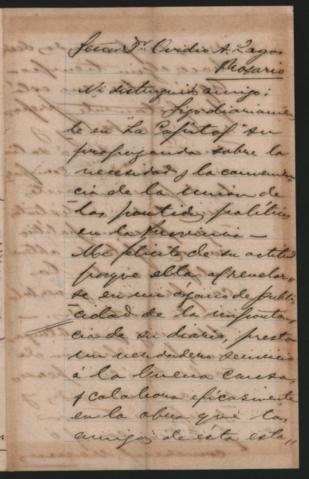 Señor Dr. Ovidio A. Lagos
Rosario
Mi distinguido amigo:
Leo diariamen-
te en "La Capital" su
propaganda sobre la
necesidad y la convenien-
cia de la union de
los partidos políticos
en la Provincia —
Me felicito de su actitud
porque ella, al revelar-
se en un órgano de publi-
cidad de la importan-
cia de su diario, presta
un verdadero servicio
á la buena causa,
y colabora eficazmente
en la obra que los
amigos de esta está,,